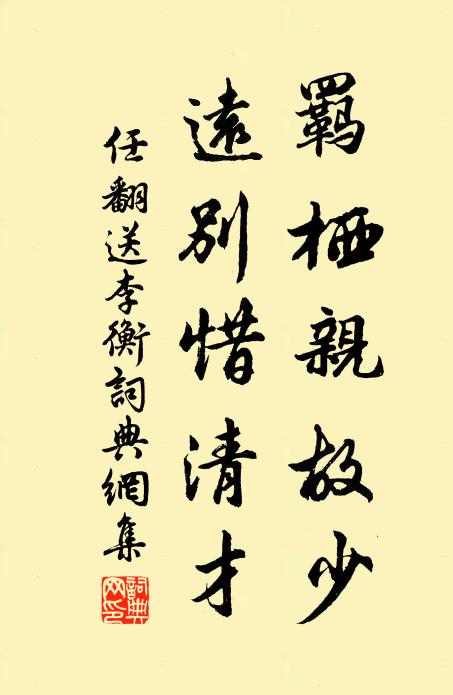 羈栖親故少
遠別惜清才
任翻送李衡詞典網集
詞典網印